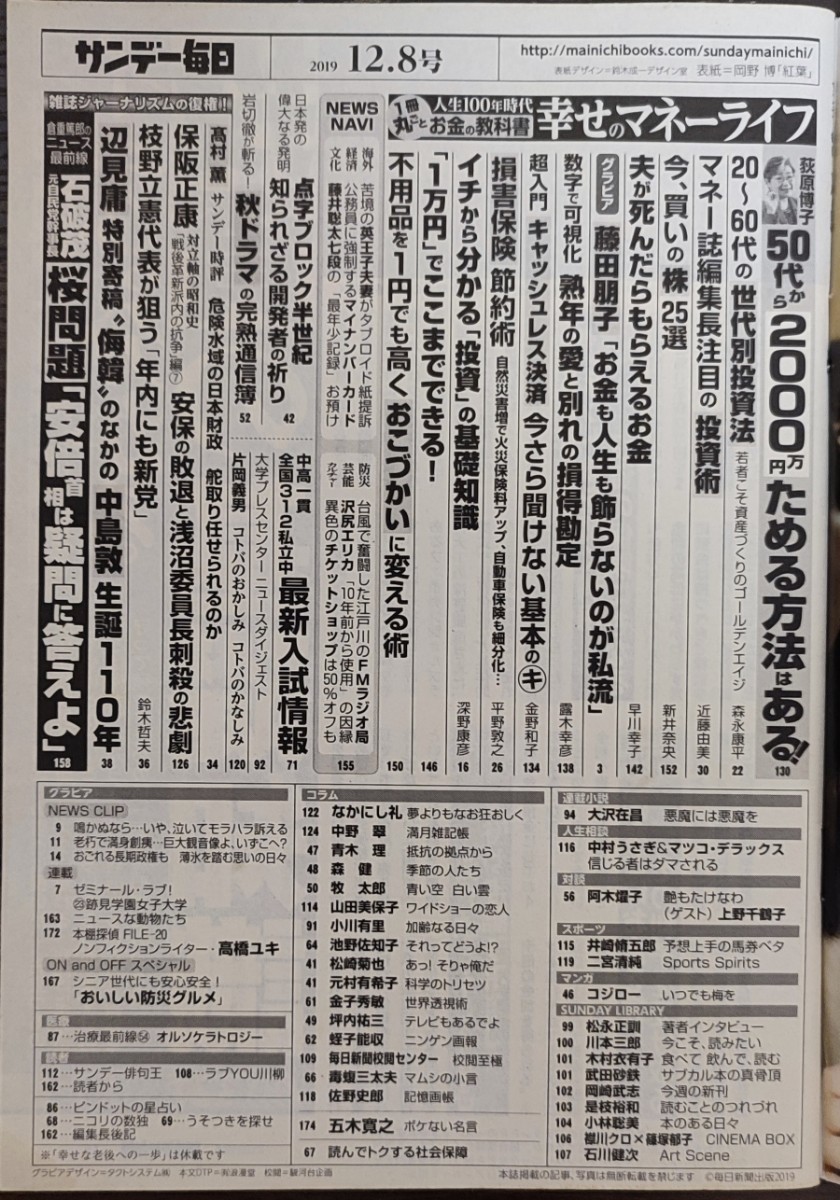 サンデー毎日
2019 12.8号
http://mainichibooks.com/sundaymainichi/
表紙デザイン=鈴木成一デザイン室 表紙=岡野 博「紅葉」
1冊丸ごと 人生100年時代 お金の教科書 幸せのマネーライフ
荻原博子 50代から2000万円ためる方法はある! 130
20~60代の世代別投資法 若者こそ資産づくりのゴールデンエイジ 森永康平 22
マネー誌編集長注目の投資術 近藤由美 30
今、買いの株25選 新井奈央 152
夫が死んだらもらえるお金 早川幸子 142
グラビア 藤田朋子「お金も人生も飾らないのが私流」 3
数字で可視化 熟年の愛と別れの損得勘定 露木幸彦 138
超入門 キャッシュレス決済 今さら聞けない基本のキ 金野和子 134
損害保険 節約術 自然災害増で火災保険料アップ、自動車保険も細分化… 平野敦之 26
イチから分かる「投資」の基礎知識 深野康彦 16
「1万円」でここまでできる! 146
不用品を1円でも高くおこづかいに変える術 150
NEWS NAVI
海外 苦境の英王子夫妻がタブロイド紙提訴
経済 公務員に強制するマイナンバーカード
文化 藤井聡太七段の「最年少記録」お預け
防災 台風で奮闘した江戸川のFMラジオ局
芸能 沢尻エリカ「10年前から使用」の因縁
カルチャー 異色のチケットショップは50%オフも
155
日本発の偉大なる発明 点字ブロック半世紀 知られざる開発者の祈り 42
岩切徹が斬る! 秋ドラマの完熟通信簿 52
中高一貫 全国312私立中 最新入試情報 71
大学プレスセンター ニュースダイジェスト 92
片岡義男 コトバのおかしみ コトバのかなしみ 120
雑誌ジャーナリズムの復権!
髙村 薫 サンデー時評 危険水域の日本財政 舵取り任せられるのか 34
保阪正康 対立軸の昭和史 「戦後革新派内の抗争」編⑦ 安保の敗退と浅沼委員長刺殺の悲劇 126
枝野立憲代表が狙う「年内にも新党」 鈴木哲夫 36
辺見庸 特別寄稿 〝侮韓〟のなかの中島敦 生誕110年 38
倉重篤郎のニュース最前線 元自民党幹事長 石破茂 桜問題「安倍首相は疑問に答えよ」 158
グラビア
NEWS CLIP
9 鳴かぬなら…いや、泣いてモラハラ訴える
11 老朽で満身創痍…巨大観音像よ、いずこへ?
14 おごれる長期政権も 薄氷を踏む思いの日々
連載
7 ゼミナール・ラブ!
㉓跡見学園女子大学
163 ニュースな動物たち
172 本棚探偵 FILE-20
ノンフィクションライター・高橋ユキ
ON and OFF スペシャル
167 シニア世代にも安心安全!
「おいしい防災グルメ」
医療
87…治療最前線54 オルソケラトロジー
読者
112…サンデー俳句王 108…ラブYOU川柳
162…読者から
86…ビンドットの星占い
68…ニコリの数独 69…うそつきを探せ
162…編集長後記
※「幸せな老後への一歩」は休載です
コラム
122 なかにし礼 夢よりもなお狂おしく
124 中野 翠 満月雑記帳
47 青木 理 抵抗の拠点から
48 森 健 季節の人たち
50 牧 太郎 青い空 白い雲
114 山田美保子 ワイドショーの恋人
91 小川有里 加齢なる日々
64 池野佐知子 それってどうよ!?
41 松崎菊也 あっ! そりゃ俺だ
41 元村有希子 科学のトリセツ
61 金子秀敏 世界透視術
49 坪内祐三 テレビもあるでよ
62 蛭子能収 ニンゲン画報
109 毎日新聞校閲センター 校閲至極
66 毒蝮三太夫 マムシの小言
118 佐野史郎 記憶画帳
174 五木寛之 ボケない名言
67 読んでトクする社会保障
連載小説
94 大沢在昌 悪魔には悪魔を
人生相談
116 中村うさぎ&マツコ・デラックス
信じる者はダマされる
対談
56 阿木燿子 艶もたけなわ
(ゲスト) 上野千鶴子
スポーツ
115 井崎脩五郎 予想上手の馬券ベタ
119 二宮清純 Sports Spirits
マンガ
46 コジロー いつでも梅を
SUNDAY LIBRARY
99 松永正訓 著者インタビュー
100 川本三郎 今こそ、読みたい
101 木村衣有子 食べて 飲んで、読む
101 武田砂鉄 サブカル本の真骨頂
102 岡崎武志 今週の新刊
103 是枝裕和 読むことのつれづれ
104 小林聡美 本のある日々
106 襟川クロ×篠塚郁子 CINEMA BOX
107 石川健次 Art Scene
グラビアデザイン=タクトシステム㈱ 本文DTP=㈲浪漫堂 校閲=駿河台企画
本誌掲載の記事、写真は無断転載を禁じます ©毎日新聞出版2019